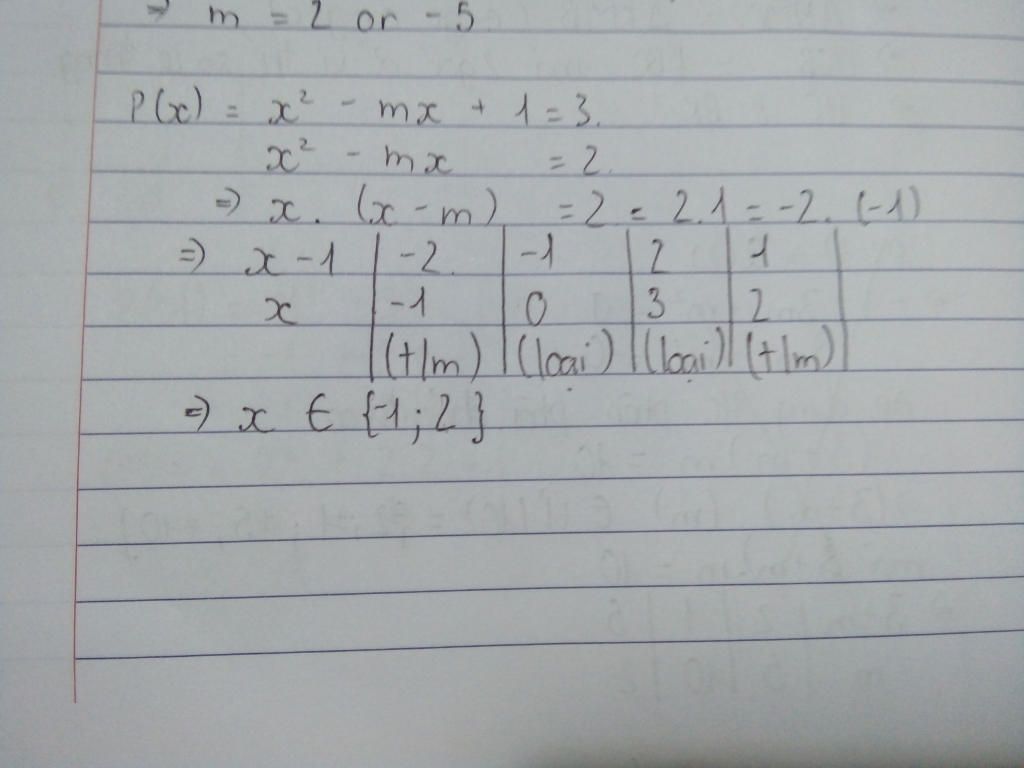 ⇒ m = 2 or -5
P(x) = x² - mx + 1 = 3.
x² - mx = 2.
⇒ x. (x - m) = 2 = 2.1 = -2. (-1)
⇒ x - 1 | -2. | -1 | 2 | 1 |
x | -1 | 0 | 3 | 2 |
| (t/m) | (loại) | (loại) | (t/m) |
⇒ x ∈ {-1; 2}